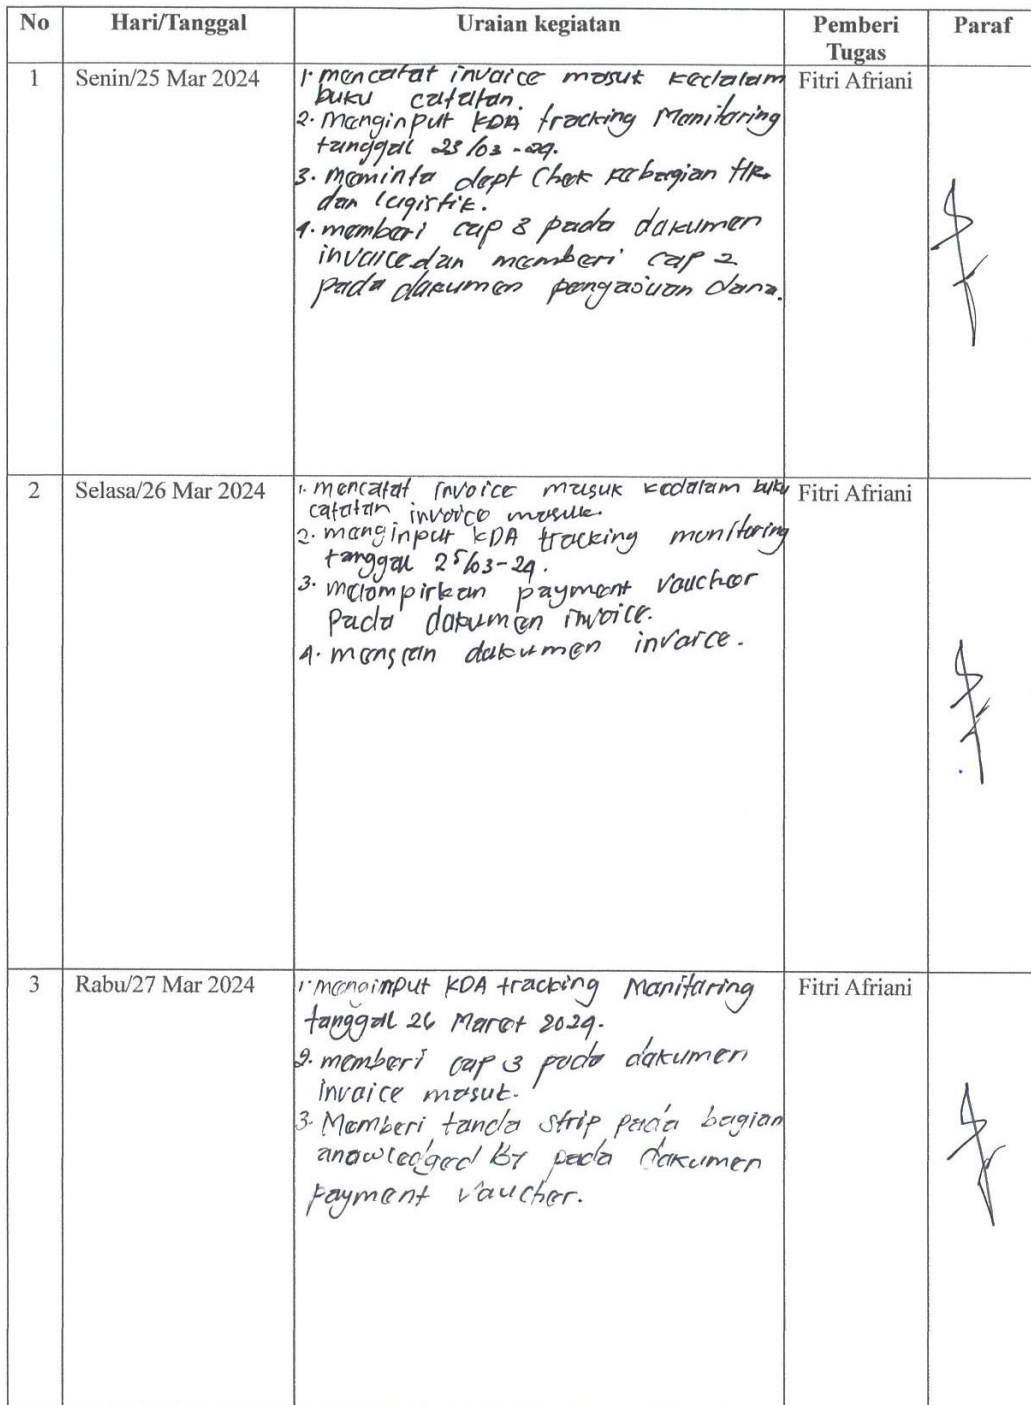 No Hari/Tanggal Uraian kegiatan Pemberi Tugas Paraf
1 Senin/25 Mar 2024 Fitri Afriani
1. mencatat invoice masuk kedalam
buku catatan.
2. Menginput KDA tracking Monitoring
tanggal 25/03-24.
3. meminta dept Chek kebagian HR.
dan logistik.
4. memberi cap 3 pada dokumen
invoice dan memberi cap 2
pada dokumen pengajuan dana.
2 Selasa/26 Mar 2024 Fitri Afriani
1. mencatat invoice masuk kedalam buku
catatan invoice masuk.
2. menginput KDA tracking monitoring
tanggal 25/03-24.
3. melampirkan payment voucher
pada dokumen invoice.
4. menscan dokumen invoice.
3 Rabu/27 Mar 2024 Fitri Afriani
1. menginput KDA tracking Monitoring
tanggal 26 Maret 2024.
2. memberi cap 3 pada dokumen
invoice masuk.
3. Memberi tanda strip pada bagian
anowledged by pada dokumen
payment voucher.